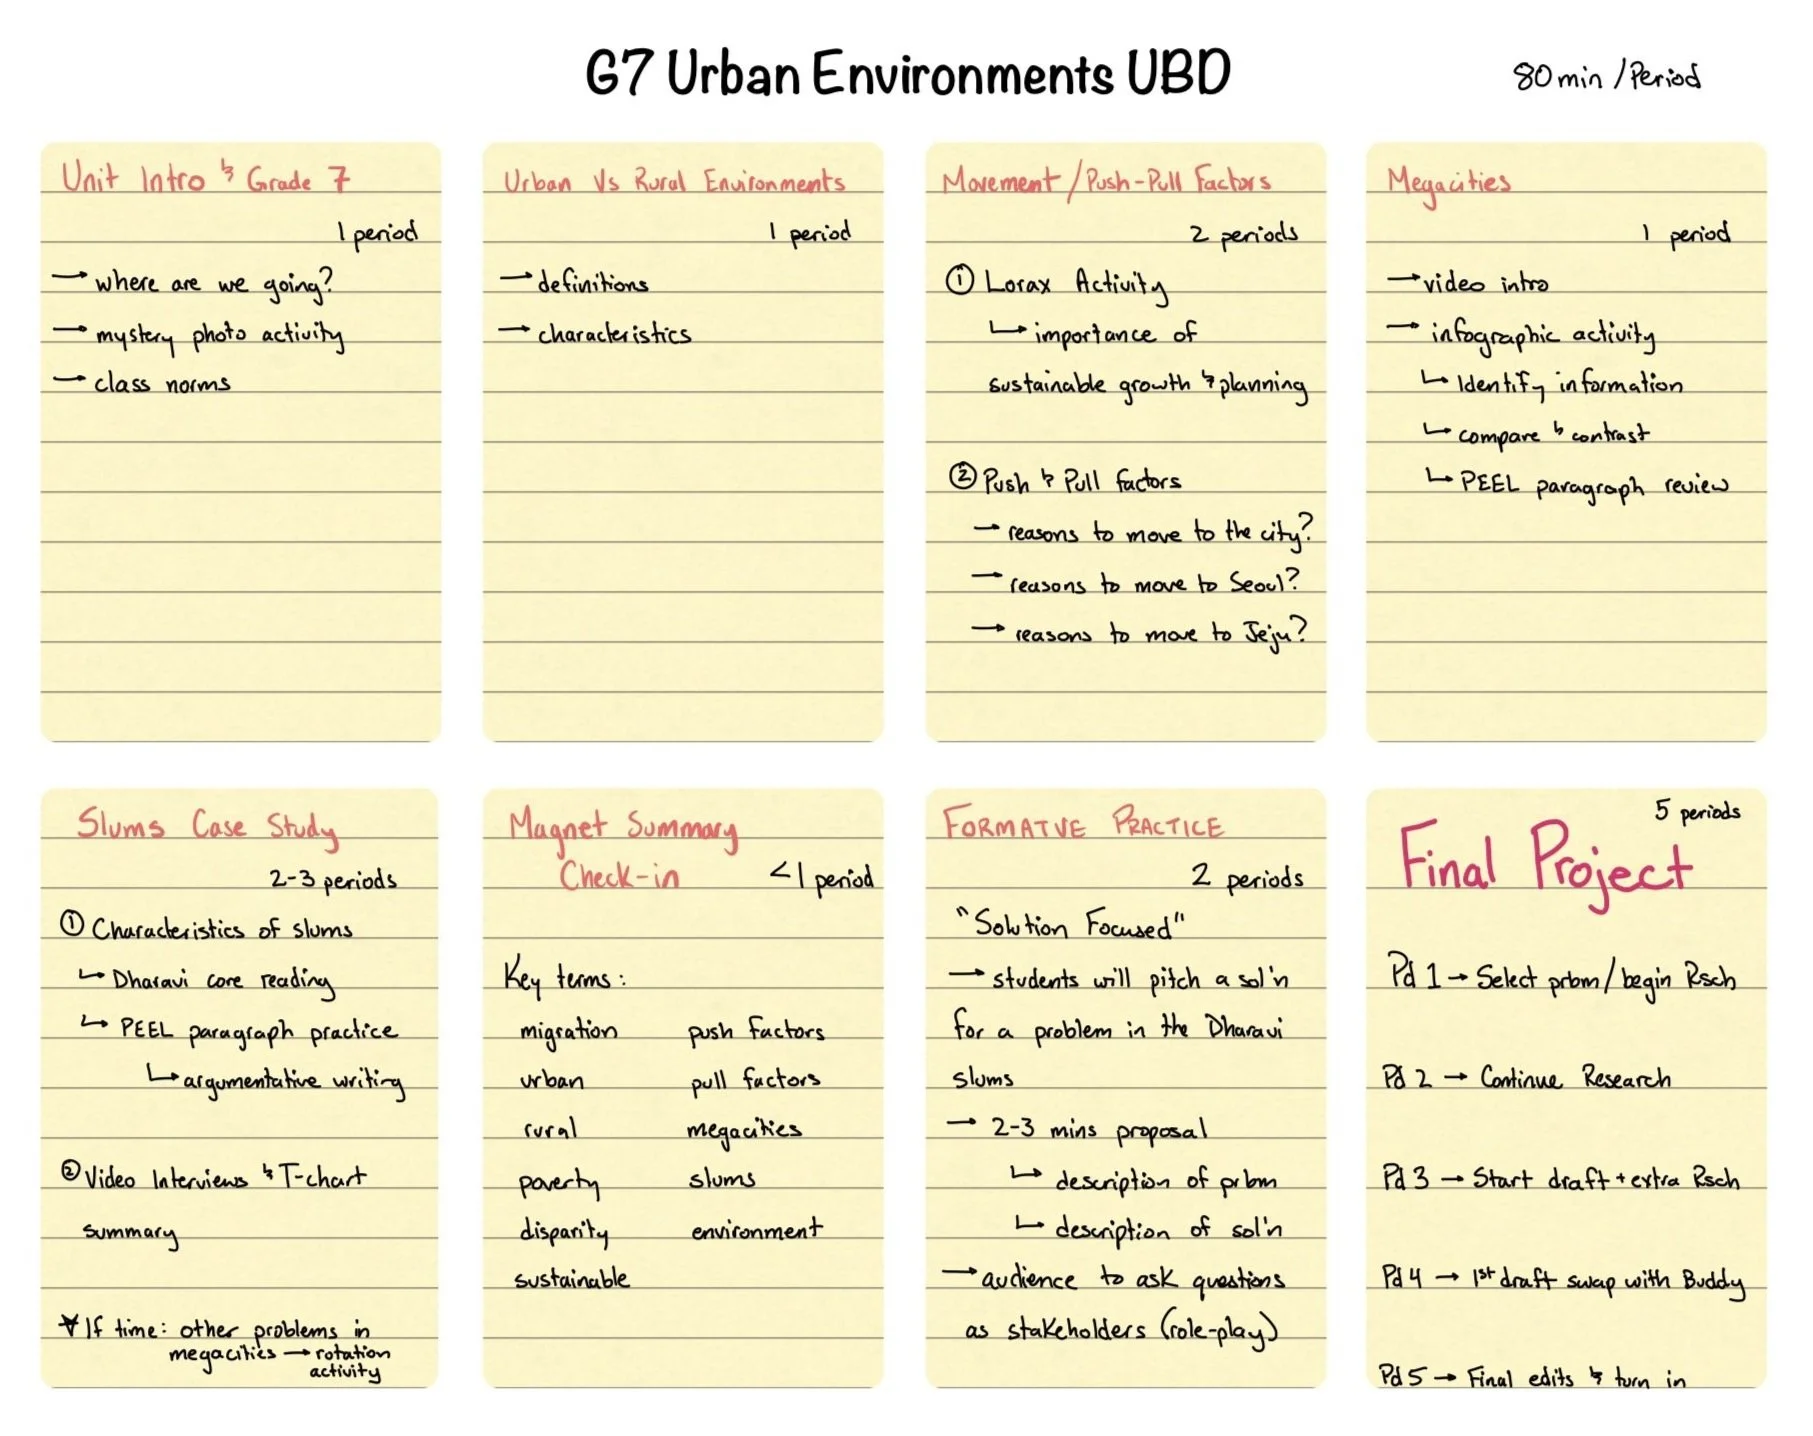 G7 Urban Environments UBD
80 min / Period
Unit Intro & Grade 7
1 period
→ where are we going?
→ mystery photo activity
→ class norms
Urban Vs Rural Environments
1 period
→ definitions
→ characteristics
Movement / Push-Pull Factors
2 periods
① Lorax Activity
↳ importance of
sustainable growth & planning
② Push & Pull factors
→ reasons to move to the city?
→ reasons to move to Seoul?
→ reasons to move to Jeju?
Megacities
1 period
→ video intro
→ infographic activity
↳ Identify information
↳ compare & contrast
↳ PEEL paragraph review
Slums Case Study
2-3 periods
① Characteristics of slums
↳ Dharavi core reading
↳ PEEL paragraph practice
↳ argumentative writing
② Video Interviews & T-chart
summary
* If time: other problems in
megacities → rotation
activity
Magnet Summary
Check-in <1 period
Key terms:
migration push factors
urban pull factors
rural megacities
poverty slums
disparity environment
sustainable
FORMATVE PRACTICE
2 periods
"Solution Focused"
→ students will pitch a sol'n
for a problem in the Dharavi
slums
→ 2-3 mins proposal
↳ description of prbm
↳ description of sol'n
→ audience to ask questions
as stakeholders (role-play)
5 periods
Final Project
Pd 1 → Select prbm/begin Rsch
Pd 2 → Continue Research
Pd 3 → Start draft + extra Rsch
Pd 4 → 1st draft swap with Buddy
Pd 5 → Final edits & turn in